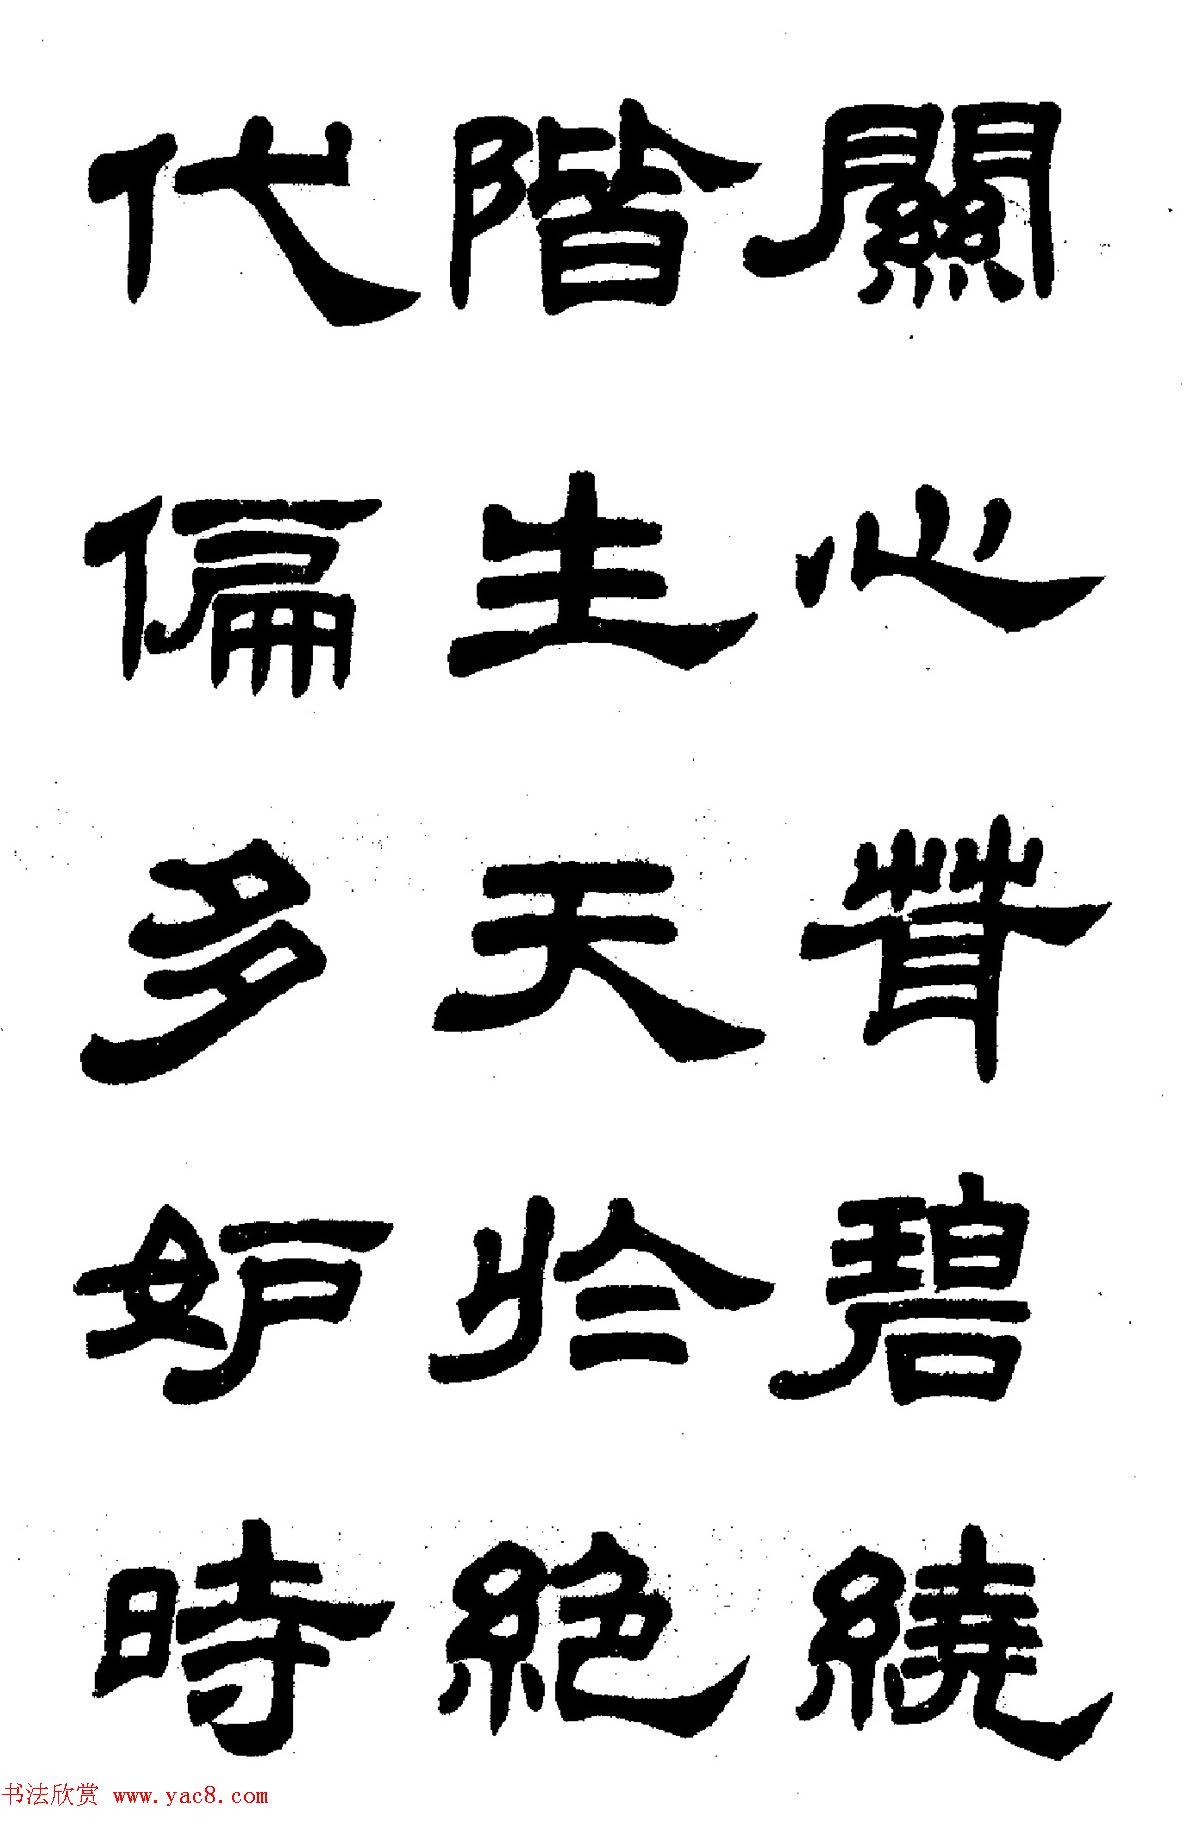 關心茸碧繞
階生天於絕
代偏多妒時
书法欣赏 www.yac8.com